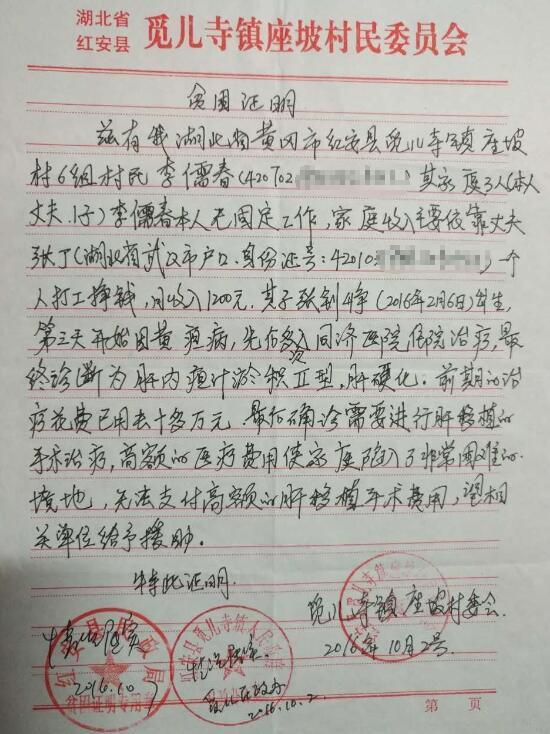 湖北省
红安县
觅儿寺镇座坡村民委员会
贫困证明
兹有我湖北省黄冈市红安县觅儿寺镇座坡
村6组村民李儒春(420702 )其家庭3人(本人
丈夫.1子)李儒春本人无固定工作,家庭收入主要依靠丈夫
张丁(湖北省武汉市户口.身份证号:42010 )一个
人打工挣钱,月收入1200元.其子张钊铮(2016年2月6日)出生,
第三天开始因黄疸病,先后多次入同济医院住院治疗,最
终诊断为肝内瘀汁淤积II型,肝硬化.前期的治
疗花费已用去十多万元.最后确诊需要进行肝移植的
手术治疗,高额的医疗费用使家庭陷入了非常困难的
境地,无法支付高额的肝移植手术费用,望相
关单位给予援助。
特此证明.
觅儿寺镇座坡村委会.
2016年10月2号
情况属实
2016.10.
红安县民政局
贫困证明专用章
红安县觅儿寺镇人民政府
情况属实.
2016.10.2.
第 页